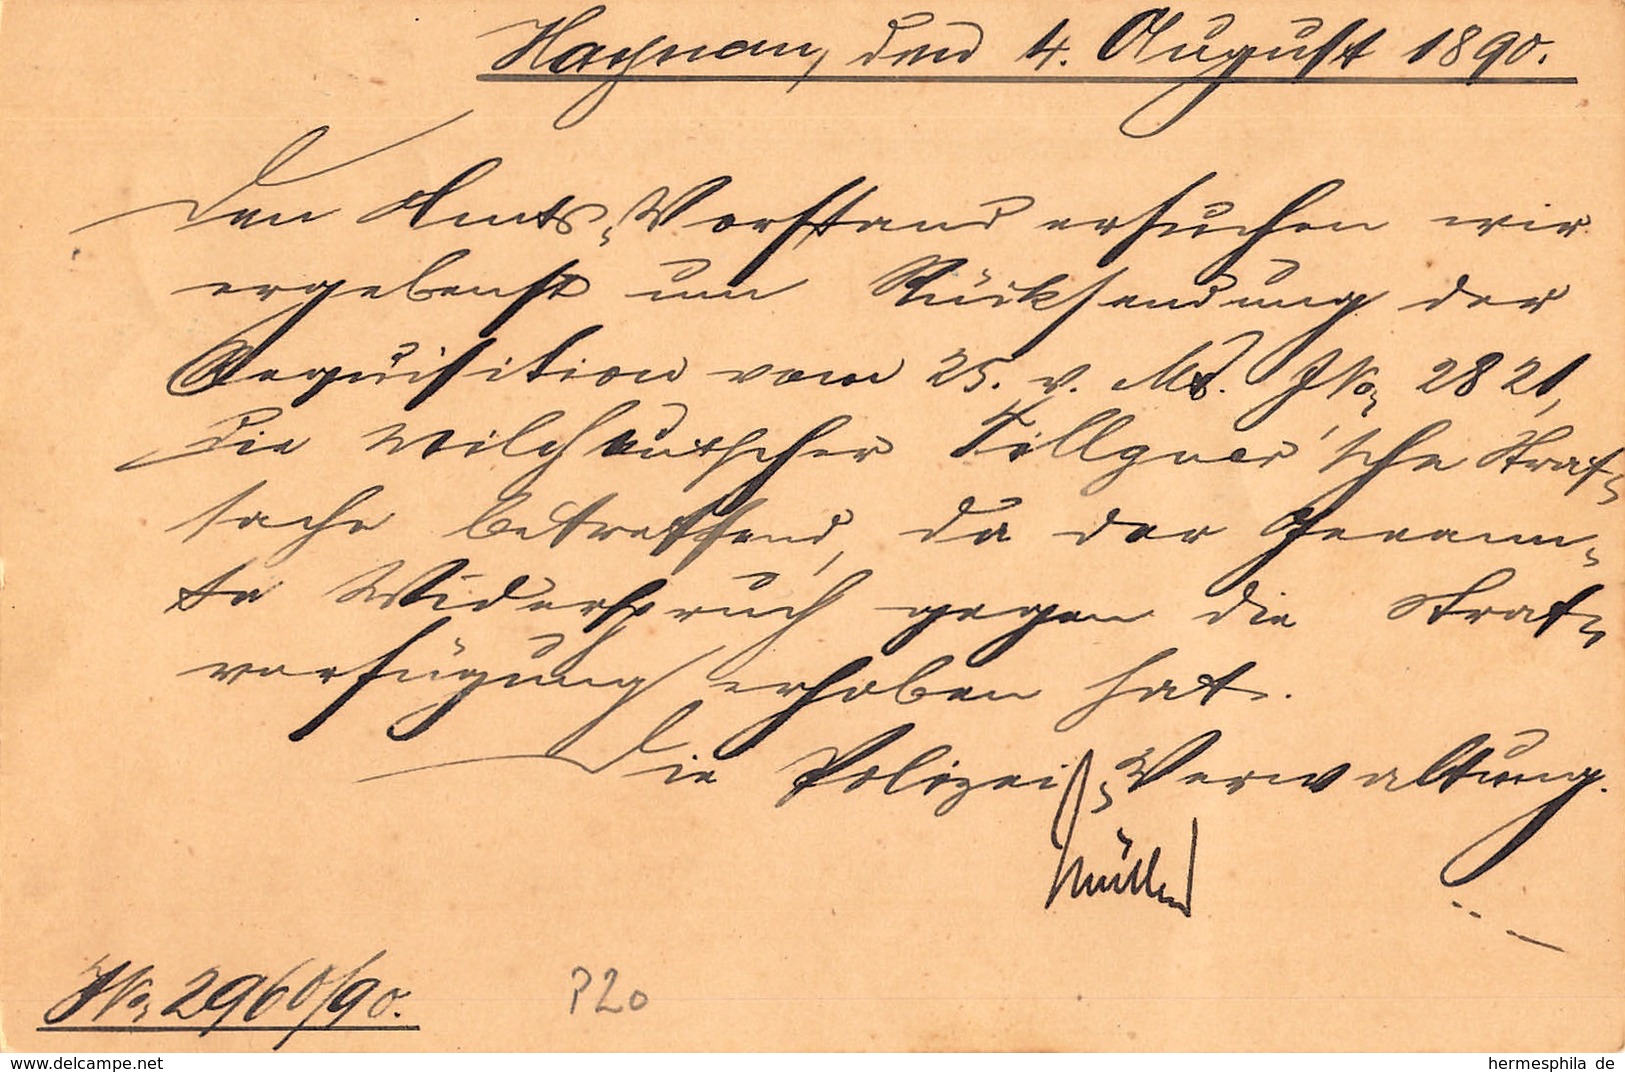 Haynau, den 4. August 1890.
Den Amts-Vorstand ersuchen wir
ergebenst um Rücksendung der
Requisition vom 25. v. Mts. JNo. 2821,
die Tillgner'sche Straf-
sache betreffend, da der Genann-
te Widerspruch gegen die Straf-
verfügung erhoben hat.
Die Polizei-Verwaltung.
Müller
JNo. 2960/90.
P20
www.delcampe.net
hermesphila de